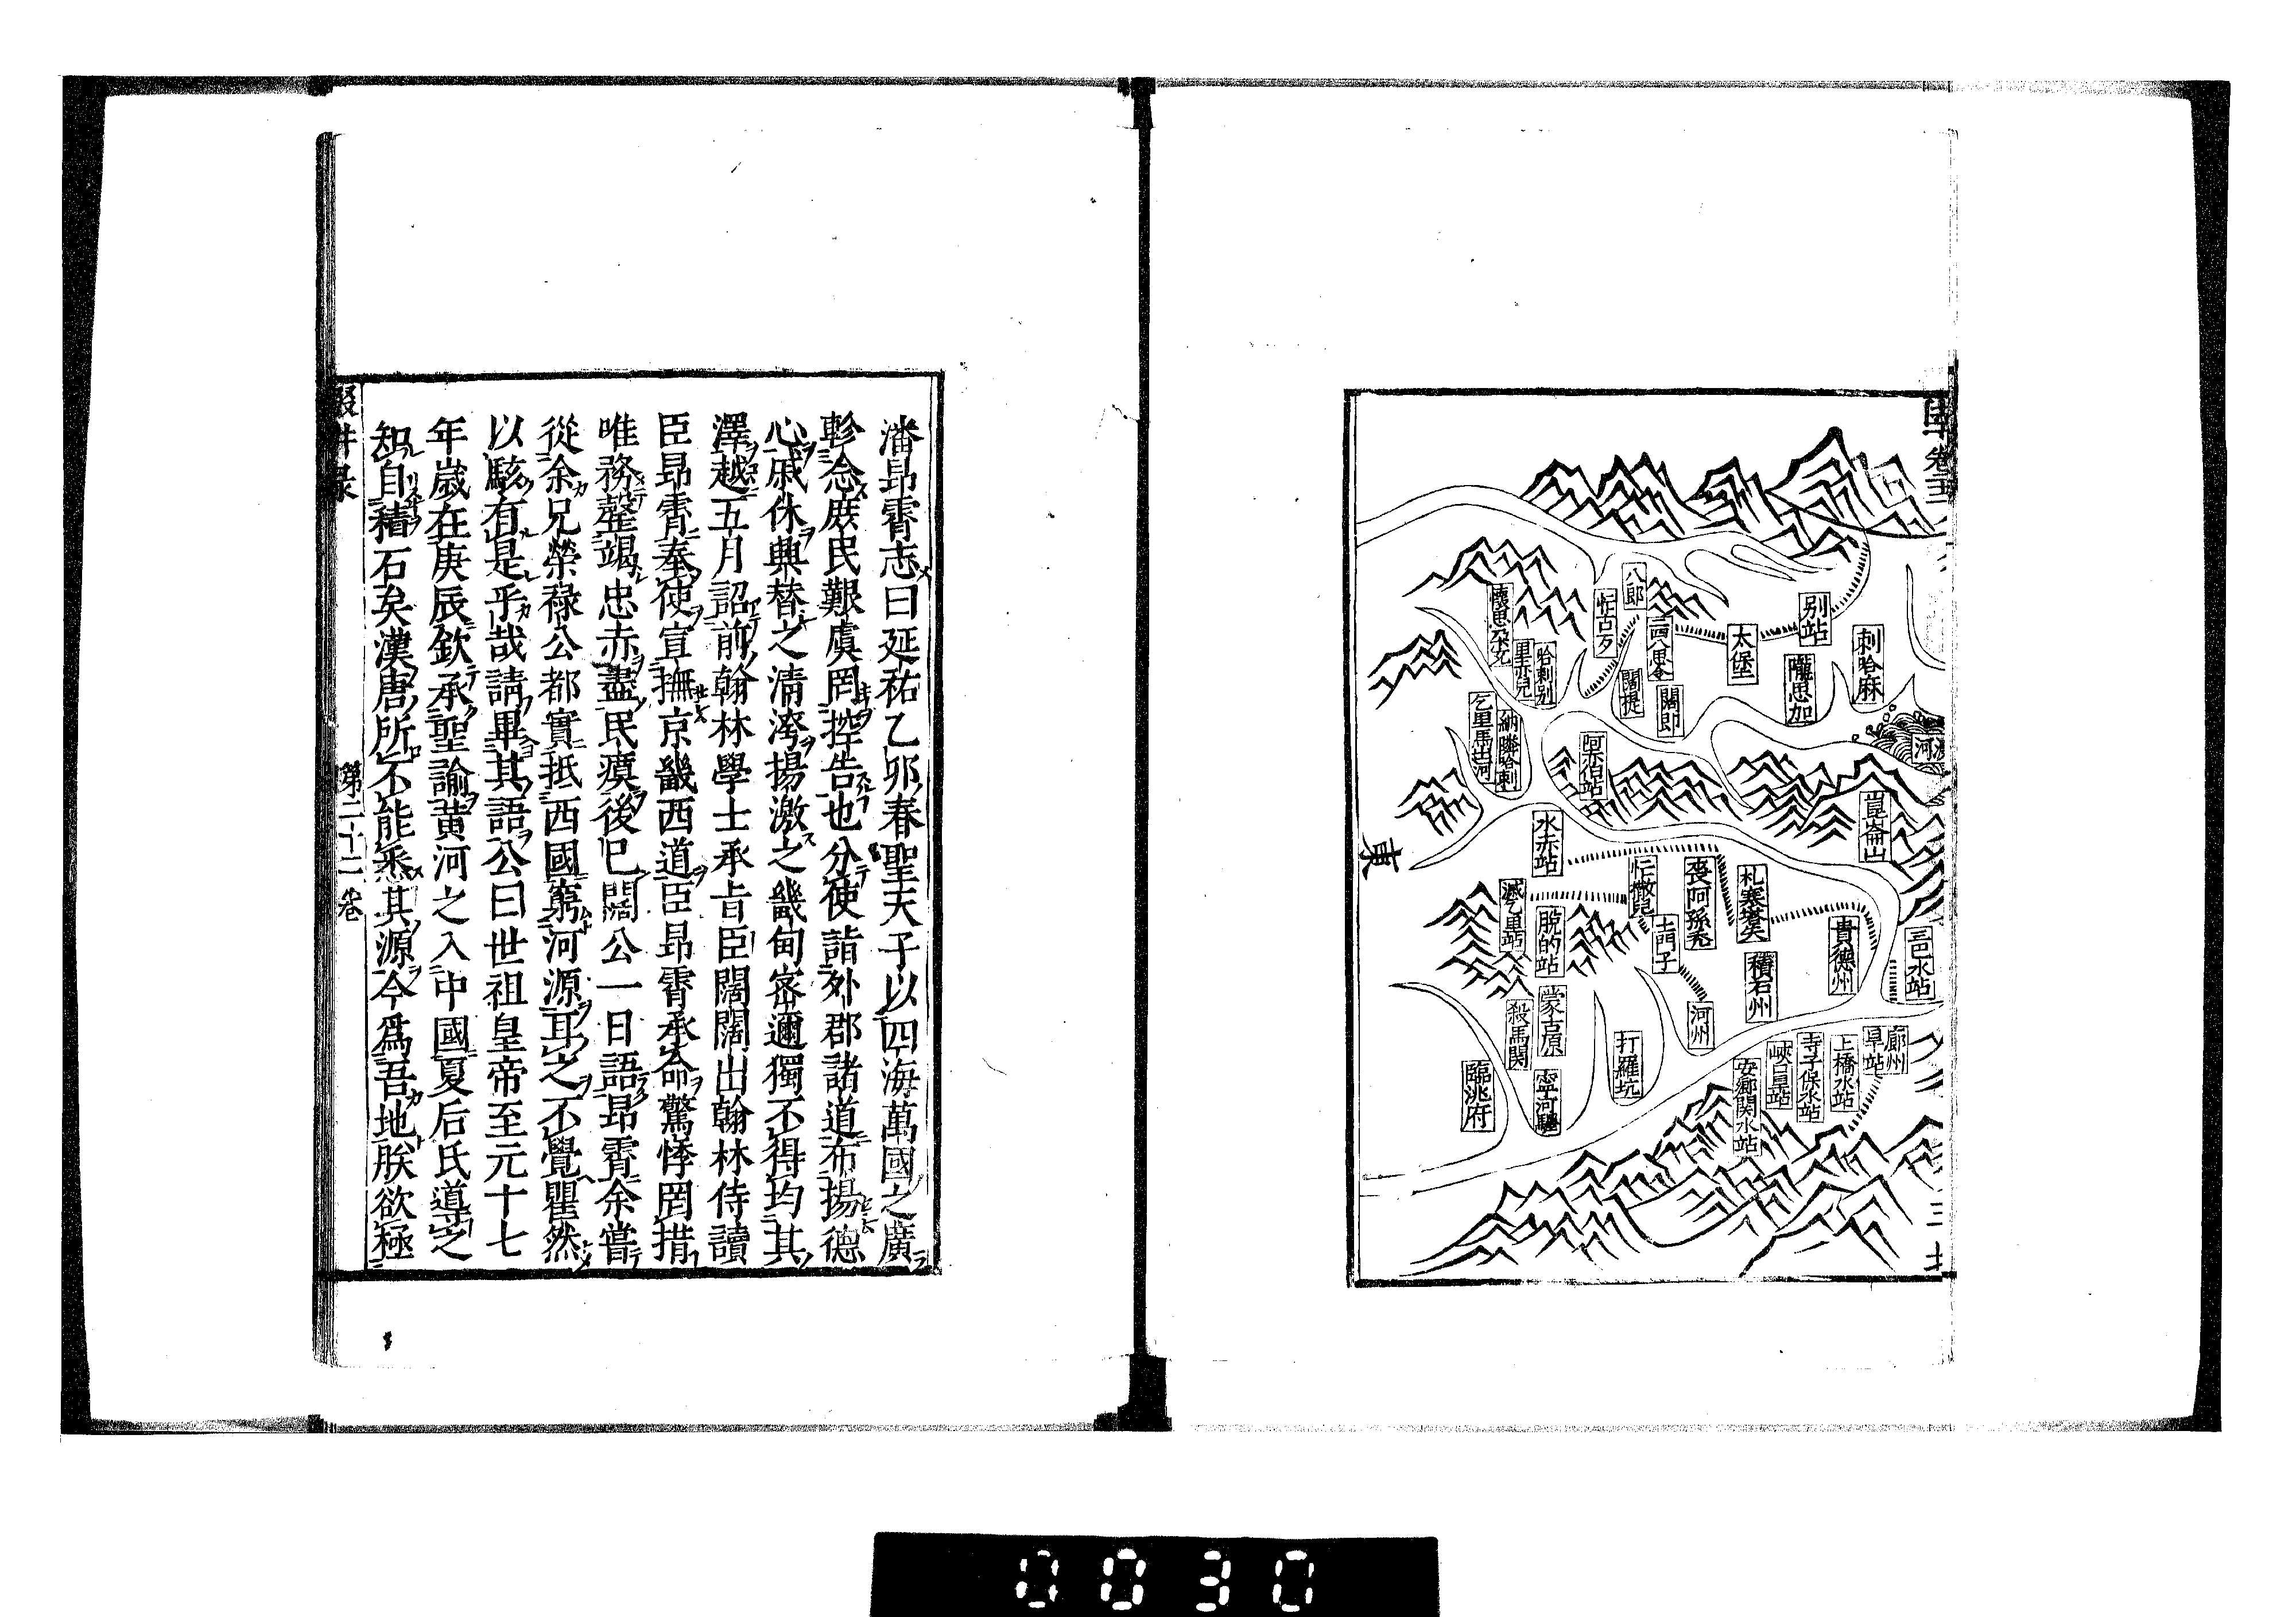 八郎
別站
刺哈麻
太堡
忙古歹
闊提
闊即
隴思加
懷思朶禿
里亦兒
哈剌別
乞里馬出河
納隣哈剌
阿赤伯站
崑崙山
河
東
水赤站
忙撒兒
䘮阿孫禿
札寒窩
貴德州
三巴水站
脫的站
土門子
積石州
河州
蒙古原
殺馬関
打羅坑
寧河驛
臨洮府
廓州
旱站
上橋水站
寺子保水站
峽口旱站
安鄉関水站
潘昂霄志曰延祐乙卯春聖天子以四海萬國之廣
軫念庶民艱虞罔控告也分使詣外郡諸道布揚德
心戚休興替之清濁揚激之畿甸密邇獨不得均其
澤越五月詔前翰林學士承旨臣闊闊出翰林侍讀
臣昂霄奉使宣撫京畿西道臣昂霄承命驚悸罔措
唯務罄竭忠赤盡民瘼後已闊公一日語昂霄余嘗
從余兄榮祿公都實抵西國窮河源耳之不覺瞿然
以駭有是乎哉請畢其語公曰世祖皇帝至元十七
年歲在庚辰欽承聖諭黃河之入中國夏后氏導之
知自積石矣漢唐所不能悉其源今爲吾地朕欲極
輟耕录
第二十二卷
0030